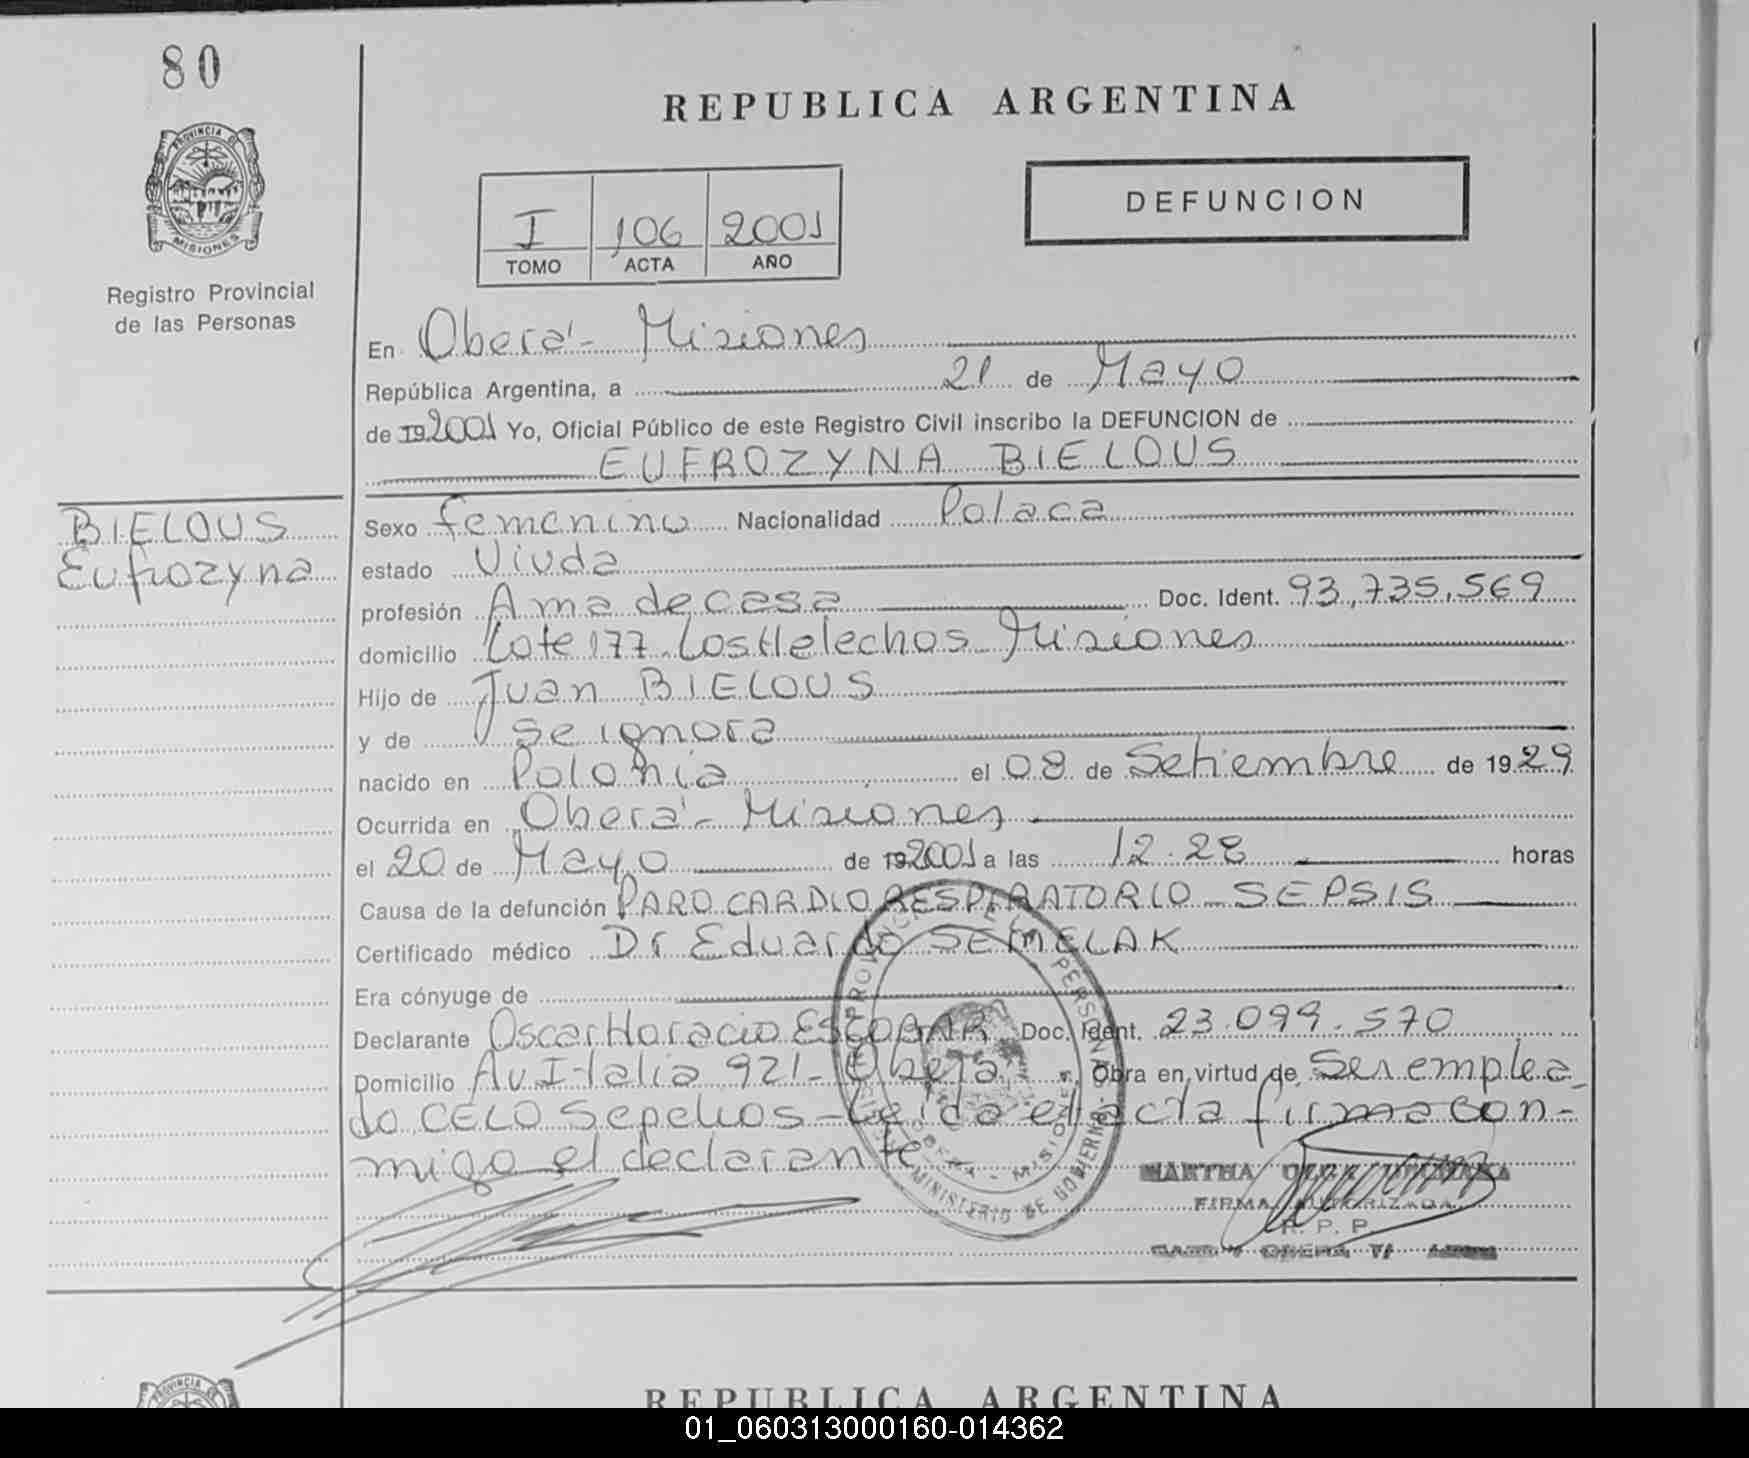 80
PROVINCIA DE
MISIONES
Registro Provincial
de las Personas
REPUBLICA ARGENTINA
I 106 2001
TOMO ACTA AÑO
DEFUNCION
En Oberá - Misiones
República Argentina, a 21 de Mayo
de 19 2001 Yo, Oficial Público de este Registro Civil inscribo la DEFUNCION de
EUFROZYNA BIELOUS
BIELOUS
Eufrozyna
Sexo femenino Nacionalidad Polaca
estado Viuda
profesión Ama de casa Doc. Ident. 93,735,569
domicilio Lote 177 - Los Helechos - Misiones
Hijo de Juan BIELOUS
y de se ignora
nacido en Polonia el 08 de Setiembre de 1929
Ocurrida en Oberá - Misiones
el 20 de Mayo de 19 2001 a las 12.28 horas
Causa de la defunción PARO CARDIO RESPIRATORIO - SEPSIS
Certificado médico Dr Eduardo SEMELAK
Era cónyuge de
Declarante Oscar Horacio ESCOBAR Doc. Ident. 23.099.570
Domicilio Av Italia 921 - Oberá Obra en virtud de Ser emplea-
do CELO Sepelios - Leída el acta firma con-
migo el declarante -
OBERA - MISIONES
MINISTERIO DE GOBIERNO
MARTHA
FIRMA AUTORIZADA
R. P. P.
PROVINCIA
REPUBLICA ARGENTINA
01_060313000160-014362